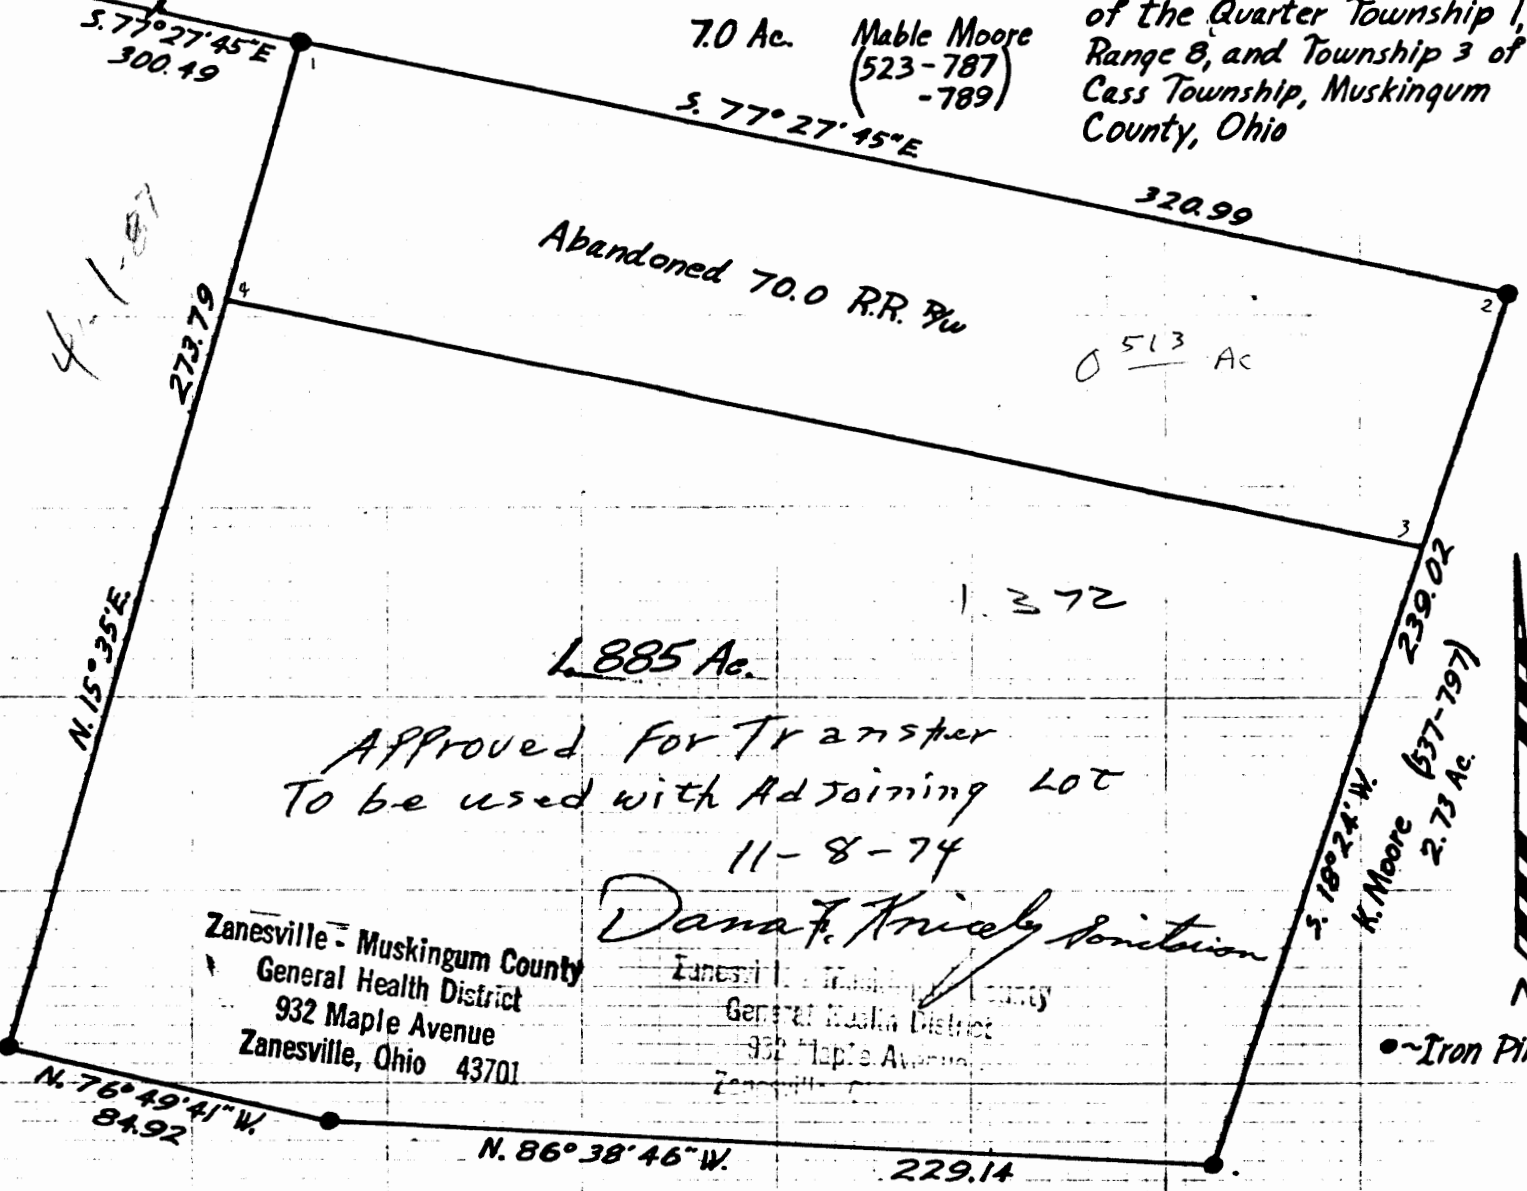 S. 77° 27' 45" E
300.49
1
7.0 Ac.
Mable Moore
(523-787
-789)
of the Quarter Township 1,
Range 8, and Township 3 of
Cass Township, Muskingum
County, Ohio
S. 77° 27' 45" E.
320.99
4-1-87
Abandoned 70.0 R.R. R/W
2
4
273.79
0 513 Ac
3
239.02
1.372
N. 15° 35' E.
1.885 Ac.
K. Moore (537-797)
2.73 Ac.
S. 18° 24' W.
Approved For Transfer
To be used with Adjoining Lot
11-8-74
Dana F. Knicely Sanitarian
Zanesville - Muskingum County
General Health District
932 Maple Avenue
Zanesville, Ohio 43701
General Health District
932 Maple Avenue
●~Iron
N. 76° 49' 41" W.
84.92
N. 86° 38' 46" W.
229.14